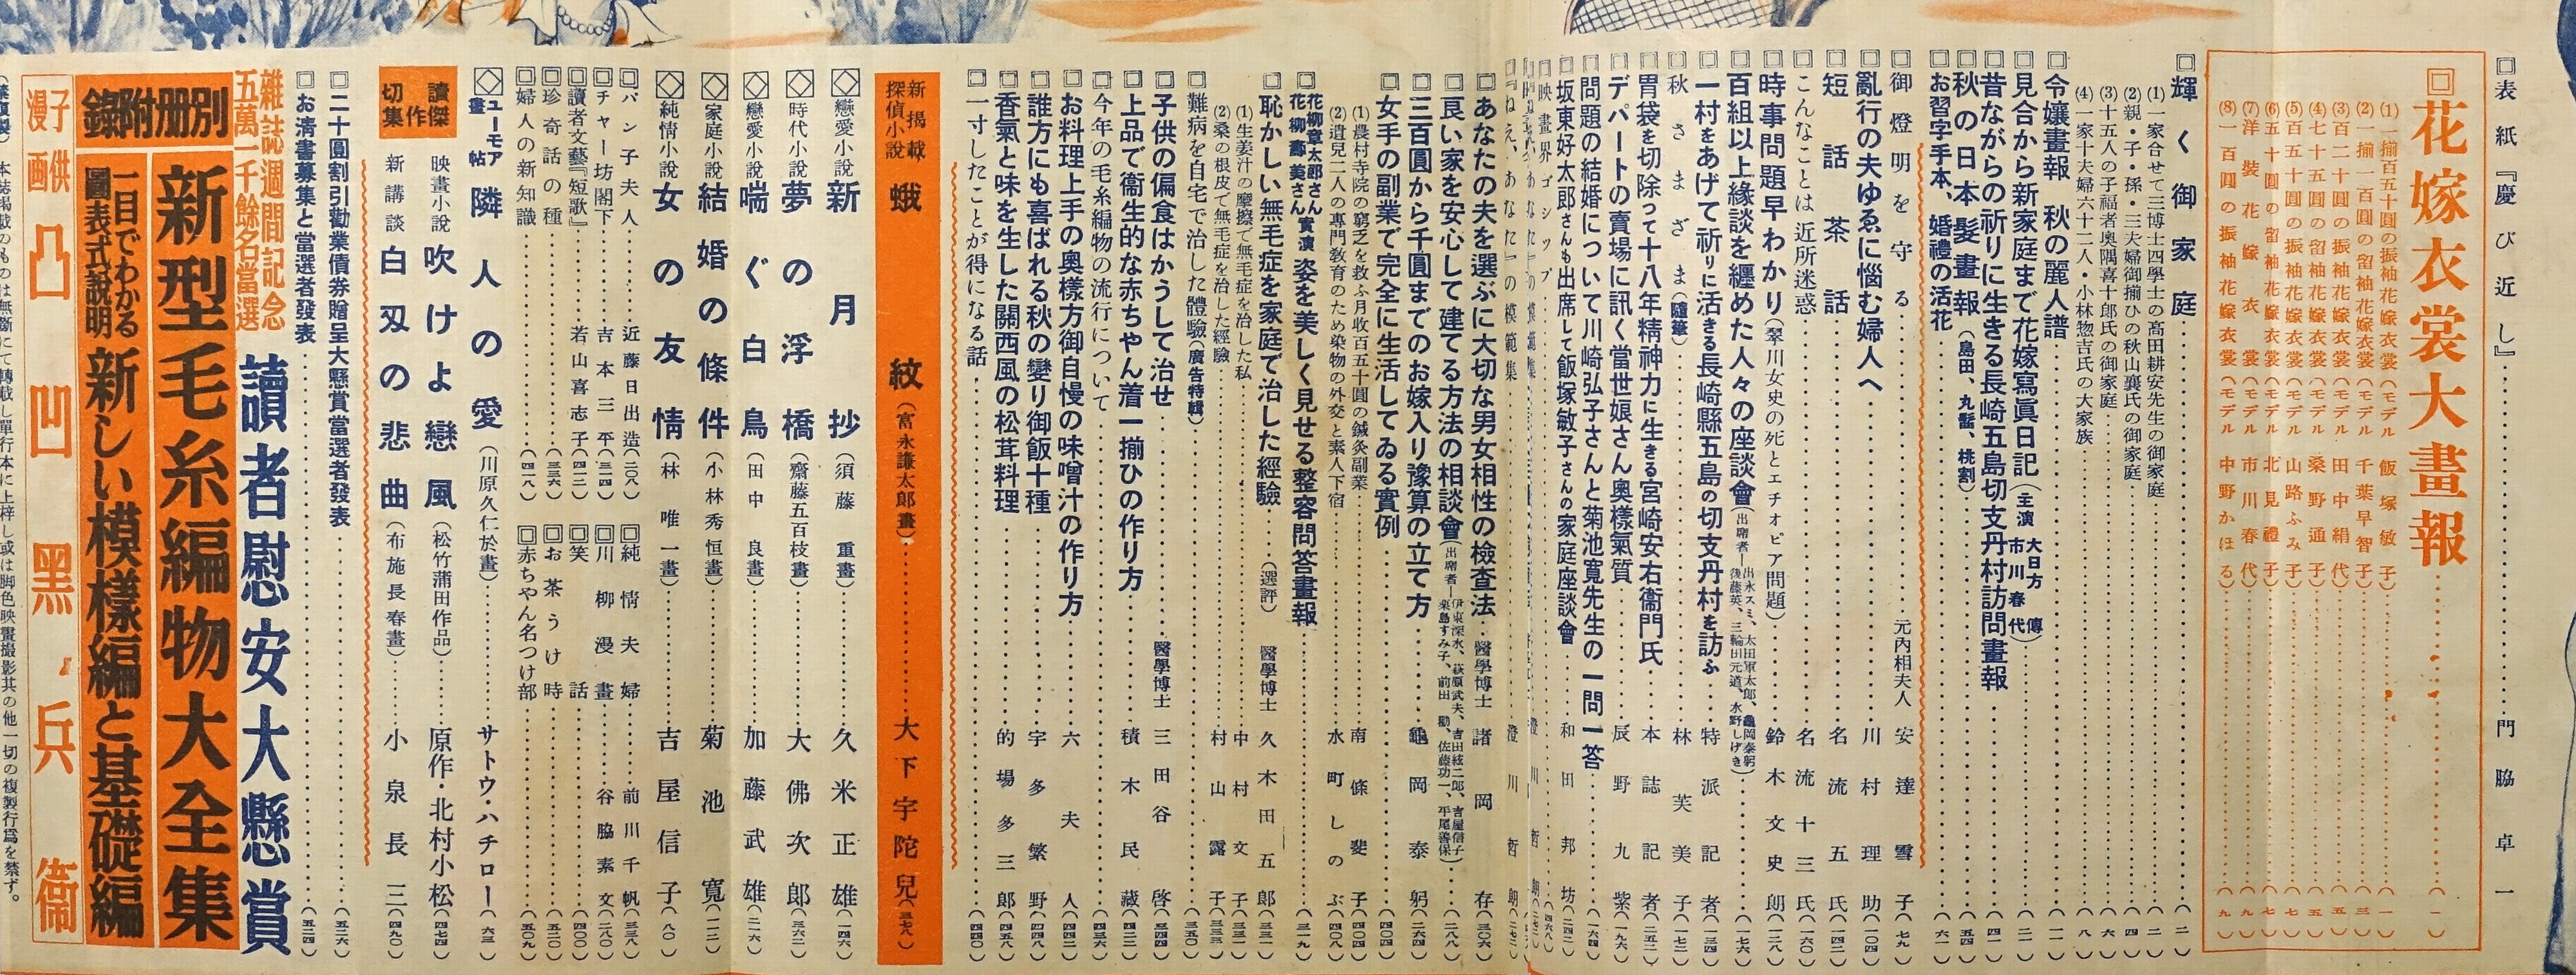 表紙『慶び近し』……門脇卓一
花嫁衣裳大畫報……(一)
(1)一揃百五十圓の振袖花嫁衣裳(モデル 飯塚敏子)……(一)
(2)一揃一百圓の留袖花嫁衣裳(モデル 千葉早智子)……(三)
(3)百二十圓の振袖花嫁衣裳(モデル 田中絹代)……(五)
(4)七十五圓の留袖花嫁衣裳(モデル 桑野通子)……(五)
(5)百五十圓の振袖花嫁衣裳(モデル 山路ふみ子)……(七)
(6)五十圓の留袖花嫁衣裳(モデル 北見禮子)……(七)
(7)洋裝花嫁衣裳(モデル 市川春代)……(九)
(8)一百圓の振袖花嫁衣裳(モデル 中野かほる)……(九)
輝く御家庭……(二)
(1)一家合せて三博士四學士の高田耕安先生の御家庭……(二)
(2)親・子・孫・三夫婦御揃ひの秋山襄氏の御家庭……(四)
(3)十五人の子福者奧隅喜十郎氏の御家庭……(六)
(4)一家十夫婦六十二人・小林惣吉氏の大家族……(八)
令孃畫報 秋の麗人譜……(一一)
見合から新家庭まで花嫁寫眞日記(主演 大日方傳 市川春代)……(二一)
昔ながらの祈りに生きる長崎五島切支丹村訪問畫報……(四一)
秋の日本髮畫報(島田、丸髷、桃割)……(五四)
お習字手本、婚禮の活花……(六一)
御燈明を守る……元內相夫人 安達雪子(七九)
亂行の夫ゆゑに惱む婦人へ……川村理助(一〇四)
短話茶話……名流五氏(一四二)
こんなことは近所迷惑……名流十三氏(一六〇)
時事問題早わかり(翠川女史の死とエチオピア問題)……鈴木文史朗(一二八)
百組以上緣談を纏めた人々の座談會(出席者―出永スミ、太田軍太郎、龜岡泰躬、後藤英、三輪田元道、水野しげき)……(一七六)
一村をあげて祈りに活きる長崎縣五島の切支丹村を訪ふ……特派記者(一三四)
秋さまざま(隨筆)……林芙美子(一七二)
胃袋を切除つて十八年精神力に生きる宮崎安右衞門氏……本誌記者(二五二)
デパートの賣場に訊く當世娘さん奧樣氣質……辰野九紫(一九六)
問題の結婚について川崎弘子さんと菊池寬先生の一問一答……(一六四)
坂東好太郎さんも出席して飯塚敏子さんの家庭座談會……和田邦坊(二四二)
映畫界ゴシップ……(四六八)
『ねえ、あなた』の模範集……澄川哲朗
あなたの夫を選ぶに大切な男女相性の檢査法……醫學博士 諸岡存(三〇六)
良い家を安心して建てる方法の相談會(出席者―伊東深水、萩原武夫、吉田絃二郎、吉屋信子、栗島すみ子、前田勸、佐藤功一、平尾善保)……(二八八)
三百圓から千圓までのお嫁入り豫算の立て方……龜岡泰躬(二六四)
女手の副業で完全に生活してゐる實例……(四〇四)
(1)農村寺院の窮乏を救ふ月收百五十圓の鍼灸副業……南條斐子(四〇四)
(2)遺兒二人の專門敎育のため染物の外交と素人下宿……水町しのぶ(四〇八)
花柳章太郎さん 花柳壽美さん 實演 姿を美しく見せる整容問答畫報……(三一九)
恥かしい無毛症を家庭で治した經驗……(選評) 醫學博士 久木田五郎(三三二)
(1)生姜汁の摩擦で無毛症を治した私……中村文子(三三二)
(2)桑の根皮で無毛症を治した經驗……村山露子(三三三)
難病を自宅で治した體驗(廣告特輯)……(三五〇)
子供の偏食はかうして治せ……醫學博士 三田谷啓(三四四)
上品で衞生的な赤ちやん着一揃ひの作り方……積木民藏(四三二)
今年の毛糸編物の流行について……(四三六)
お料理上手の奧樣方御自慢の味噌汁の作り方……六夫人(四四二)
誰方にも喜ばれる秋の變り御飯十種……宇多繁野(四四八)
香氣と味を生した關西風の松茸料理……的場多三郎(四五八)
一寸したことが得になる話……(四四〇)
新揭載 探偵小說 蛾紋(富永謙太郎畫)……大下宇陀兒(三七八)
戀愛小說 新月抄(須藤重畫)……久米正雄(一四六)
時代小說 夢の浮橋(齋藤五百枝畫)……大佛次郎(三六二)
戀愛小說 喘ぐ白鳥(田中良畫)……加藤武雄(二一六)
家庭小說 結婚の條件(小林秀恒畫)……菊池寬(一一二)
純情小說 女の友情(林唯一畫)……吉屋信子(八〇)
パン子夫人……近藤日出造(二〇八)
チャー坊閣下……吉本三平(三一四)
讀者文藝『短歌』……若山喜志子(四一二)
珍奇話の種……(三三六)
婦人の新知識……(四一八)
純情夫婦……前川千帆(三三八)
川柳漫畫……谷脇素文(二八〇)
笑話……(四〇〇)
お茶うけ時……(五二〇)
赤ちやん名つけ部……(五〇九)
ユーモア畫帖 隣人の愛(川原久仁於畫)……サトウ・ハチロー(六三)
讀切傑作集
映畫小說 吹けよ戀風(松竹蒲田作品)……原作・北村小松(四七四)
新講談 白刄の悲曲(布施長春畫)……小泉長三(四九〇)
二十圓割引勸業債券贈呈大懸賞當選者發表……(五二六)
お淸書募集と當選者發表……(五二四)
雜誌週間記念 五萬一千餘名當選 讀者慰安大懸賞
別册附錄
新型毛糸編物大全集
一目でわかる圖表式說明 新しい模樣編と基礎編
子供漫画 凸凹黑兵衞
(禁複製) 本誌揭載のものは無斷にて轉載し單行本に上梓し或は脚色映畫撮影其の他一切の複製行爲を禁ず。